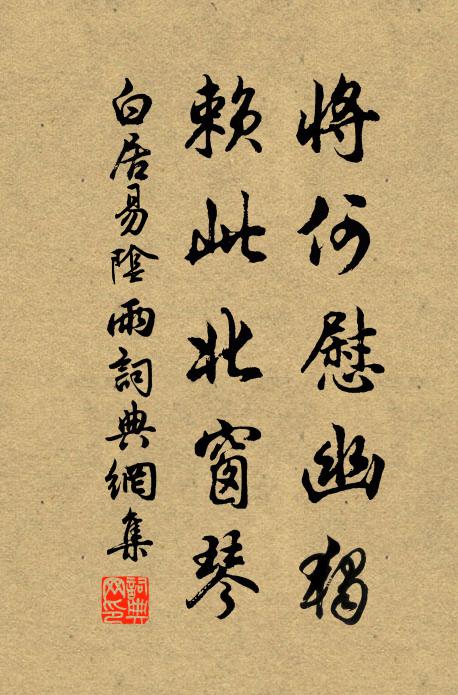 將何慰幽獨
賴此北窗琴
白居易陰雨詞典網集
詞典網印